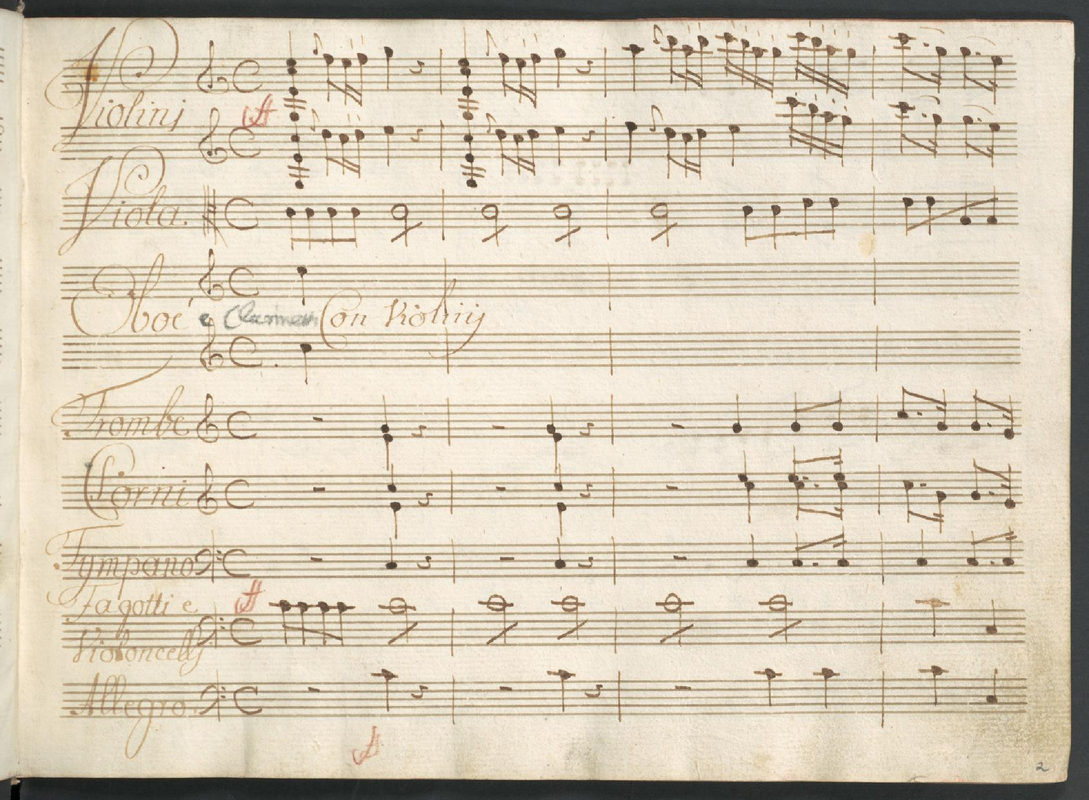 Violini
Viola.
Oboé e Clarinetti Con Violinij
Trombe
Corni
Tympano
Fagotti e
Violoncelli
Allegro.
2